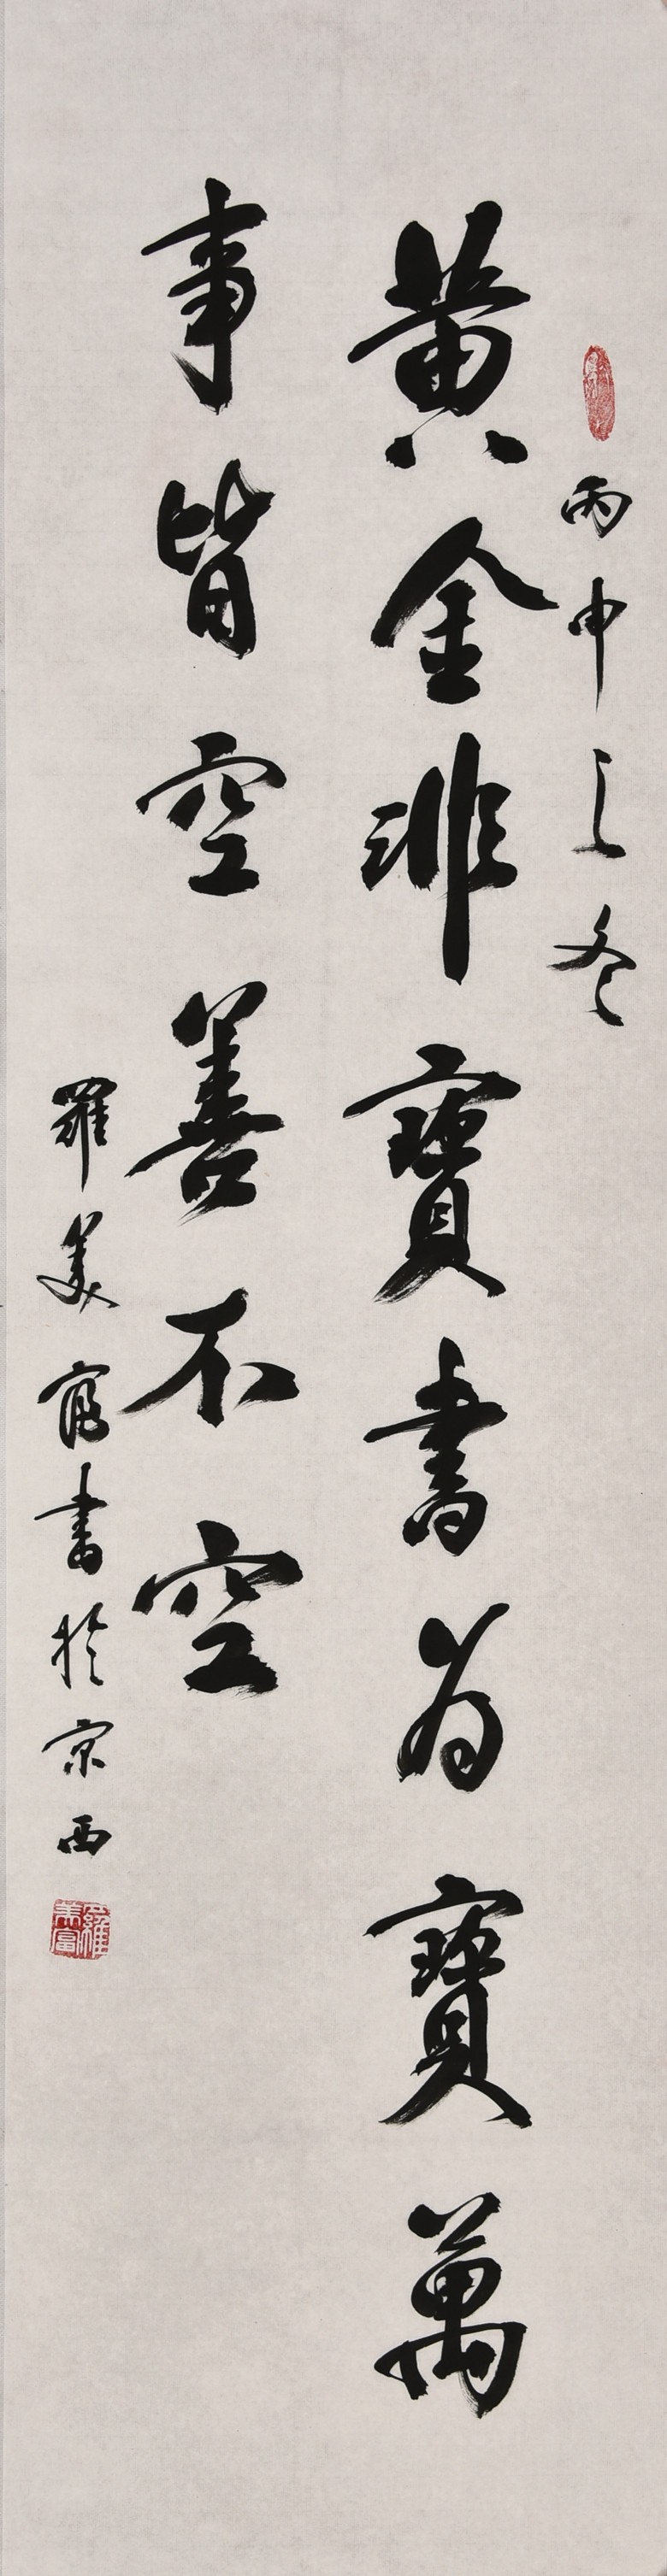 丙申之冬
黄金非寶書為寶萬
事皆空善不空
羅美富書於京西
羅美富